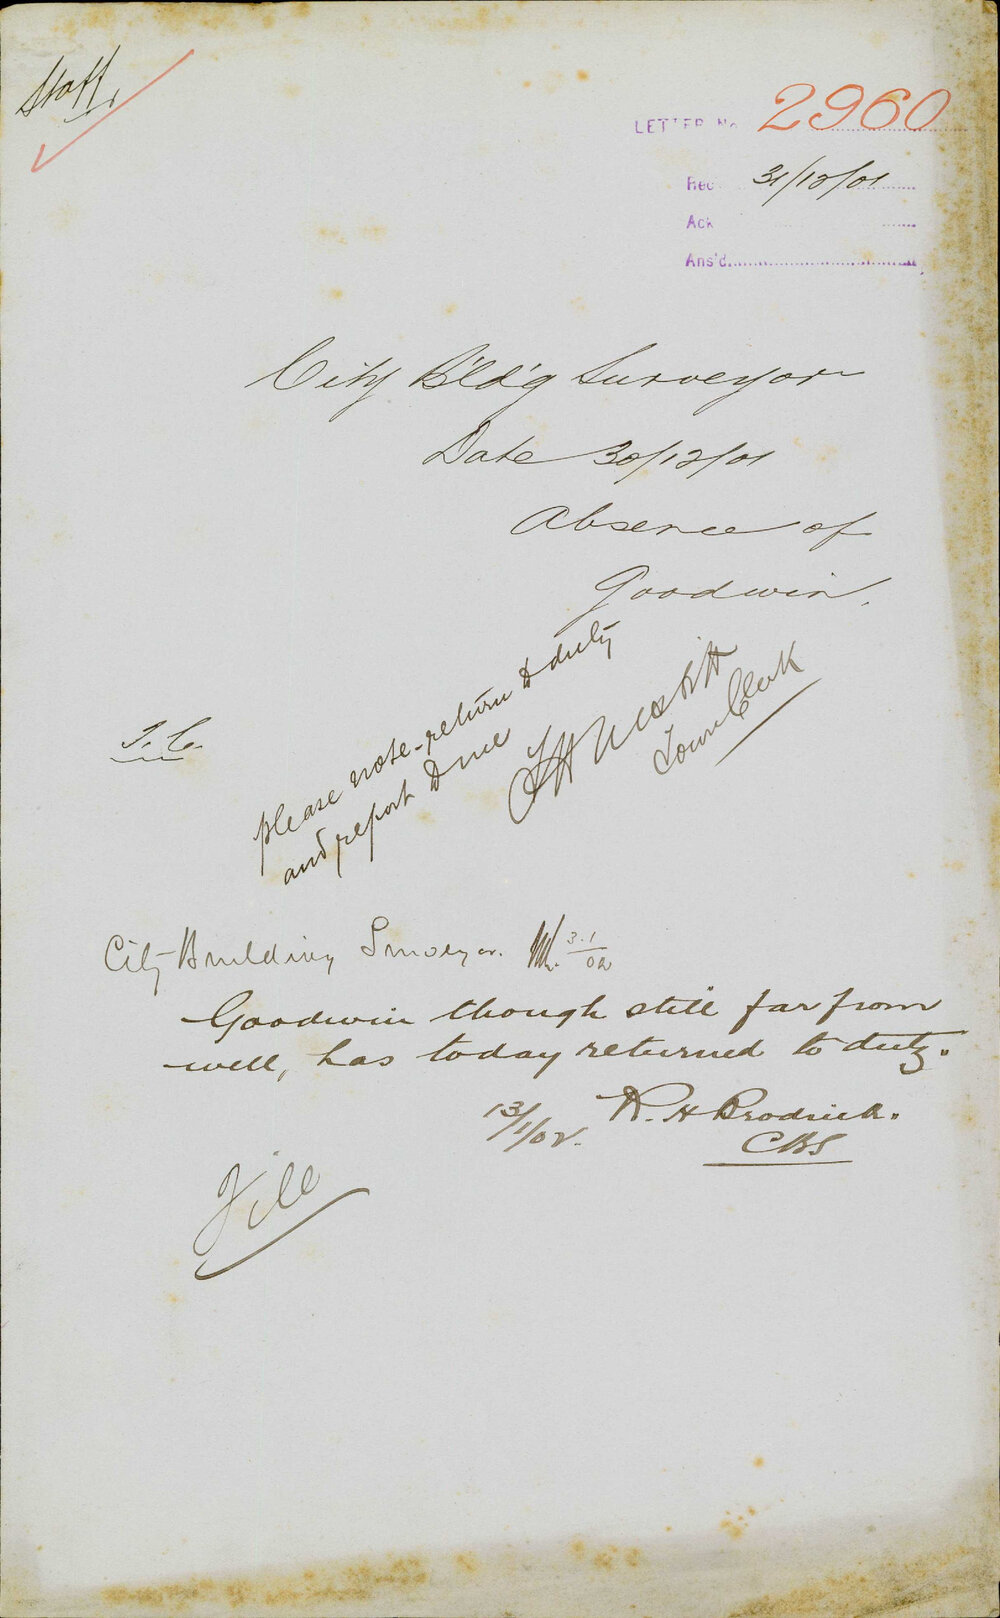 Staff.
LETTER No 2960
Rec 31/12/01
Ack
Ans'd
City B'ld'g Surveyor
Date 30/12/01
Absence of
Goodwin.
T.C.
please note - return to duty
and report to me
Town Clerk
City Building Surveyor. 3.1/02
Goodwin though still far from
well, has today returned to duty.
13/1/02. H Brodrick.
CBS
File